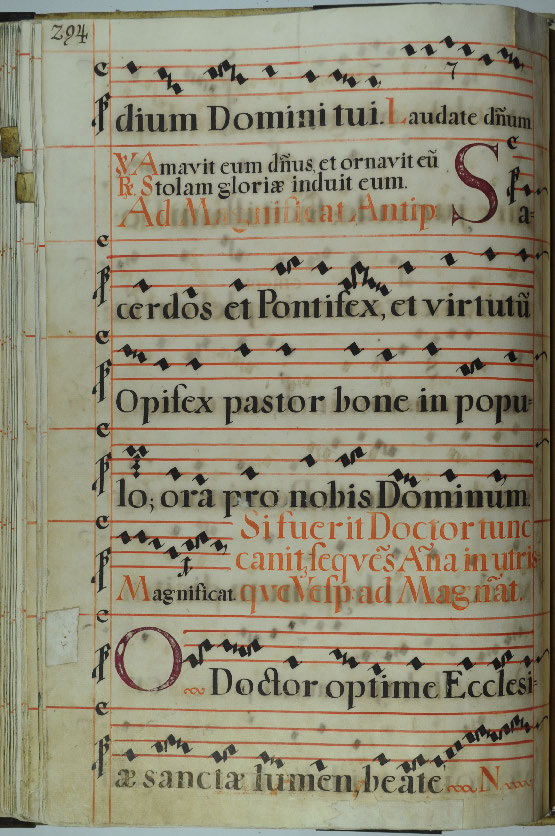 294
dium Domini tui. Laudate dñum
℣ Amavit eum dñus, et ornavit eũ
℟ Stolam gloriæ induit eum.
Ad Magnificat Antip
Sa=
cerdos et Pontifex, et virtutũ
Opifex pastor bone in popu=
lo, ora pro nobis Dominum.
Si fuerit Doctor tunc
canit, seqvẽs Añа in utris
Magnificat. qve Vesp ad Magnãt.
O Doctor optime Ecclesi=
æ sanctæ lumen, beate N